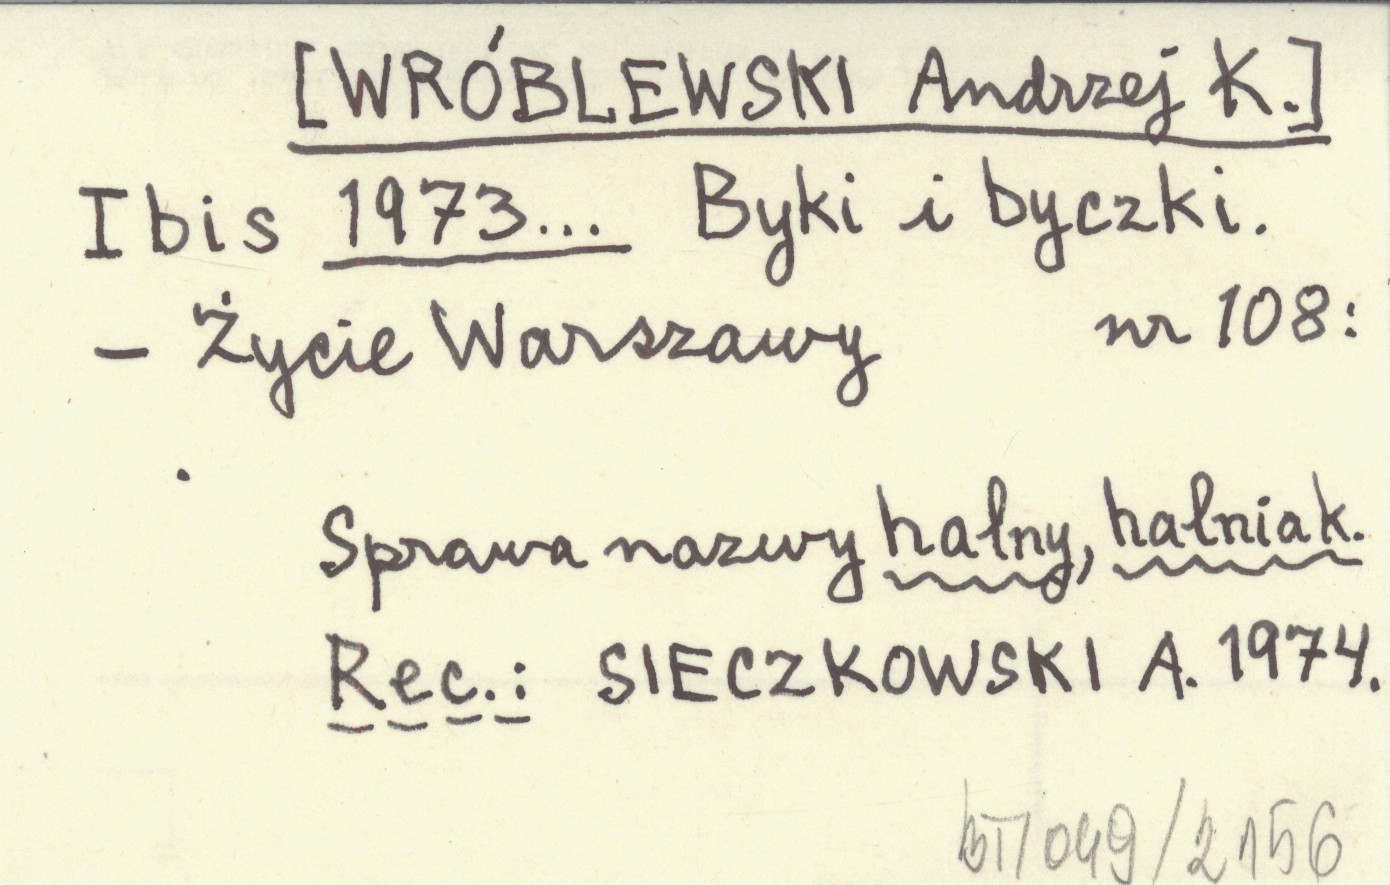 [WRÓBLEWSKI Andrzej K.]
Ibis 1973... Byki i byczki.
– Życie Warszawy nr 108:
Sprawa nazwy halny, halniak.
Rec.: SIECZKOWSKI A. 1974.
049/2156